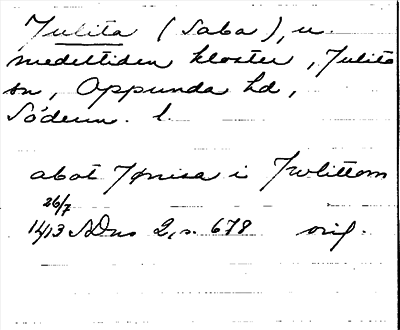 Julita (Saba), u.
medeltiden kloster, Julita
sn, Oppunda hd,
Söderm. l.
abot Jønisa i Jwlittom
26/7
1413 SDns 2, s. 678 orig.